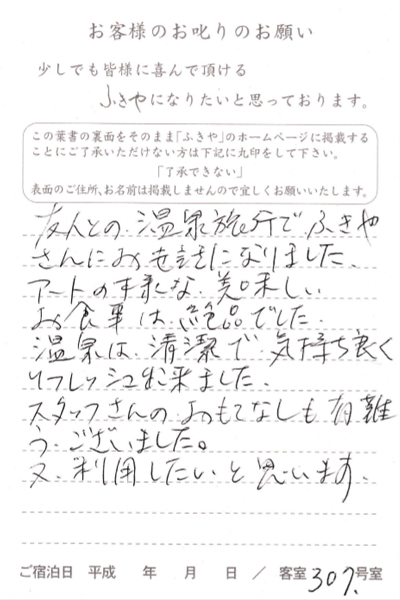 お客様のお叱りのお願い
少しでも皆様に喜んで頂ける
ふきやになりたいと思っております。
この葉書の裏面をそのまま「ふきや」のホームページに掲載する
ことにご了承いただけない方は下記に丸印をして下さい。
「了承できない」
表面のご住所、お名前は掲載しませんので宜しくお願いいたします。
友人との温泉旅行で、ふきや
さんにお世話になりました、
アートの様な、美味しい
お食事は、絶品でした、
温泉は、清潔で、気持ち良く
リフレッシュ出来ました、
スタッフさんのおもてなしも有難
う、ございました。
又、利用したいと思います、
ご宿泊日 平成 年 月 日 / 客室 307.号室